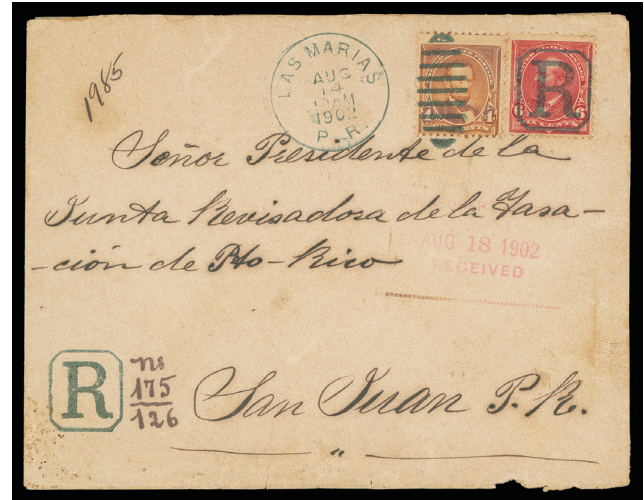 1985
LAS MARIAS
AUG
14
1902
P. R.
4
6
6
R
Señor Presidente de la
Junta Revisadora de la Tasa-
-ción de Pto-Rico
AUG 18 1902
RECEIVED
R
No
175
126
San Juan P. R.
"